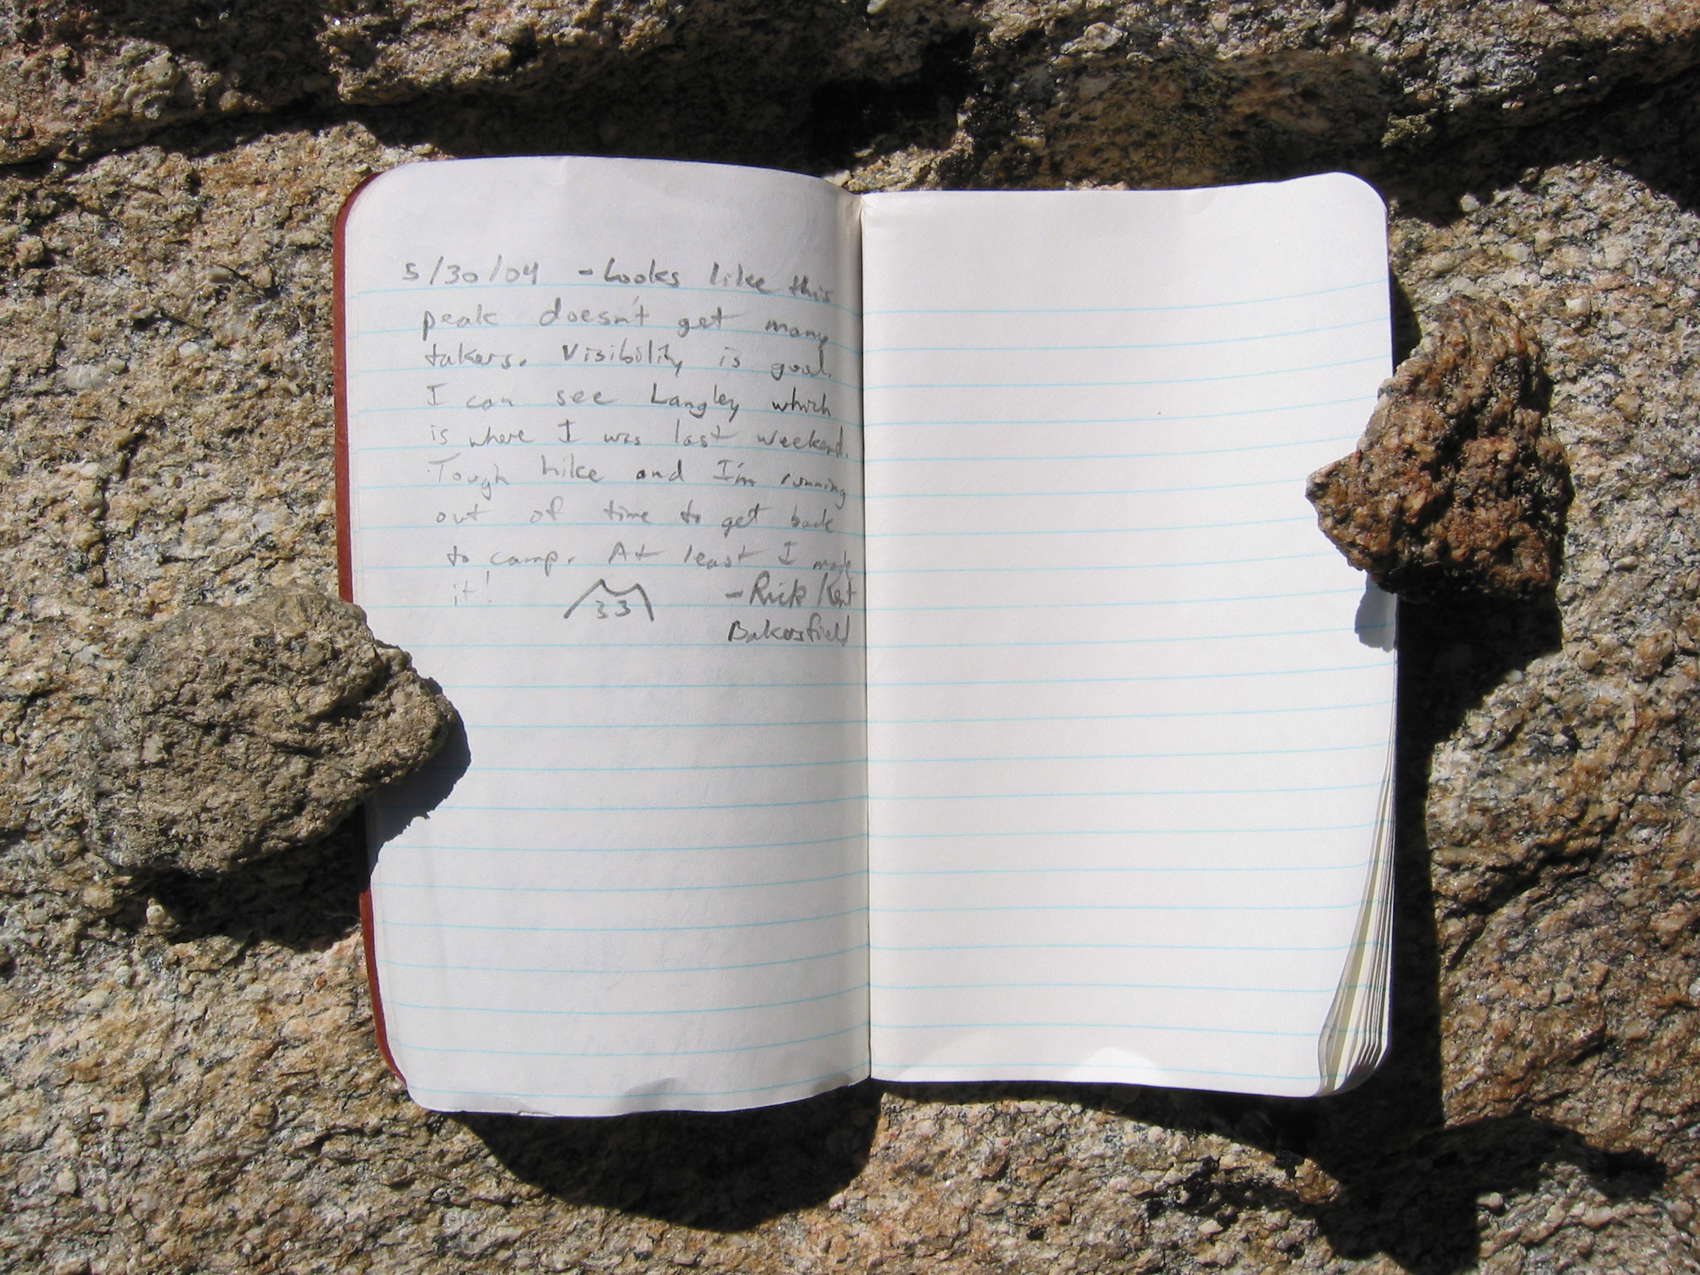 5/30/04 - Looks like this
peak doesn't get many
takers. Visibility is good.
I can see Langley which
is where I was last weekend.
Tough hike and I'm running
out of time to get back
to camp. At least I made
it!
33
- Rick Kent
Bakersfield